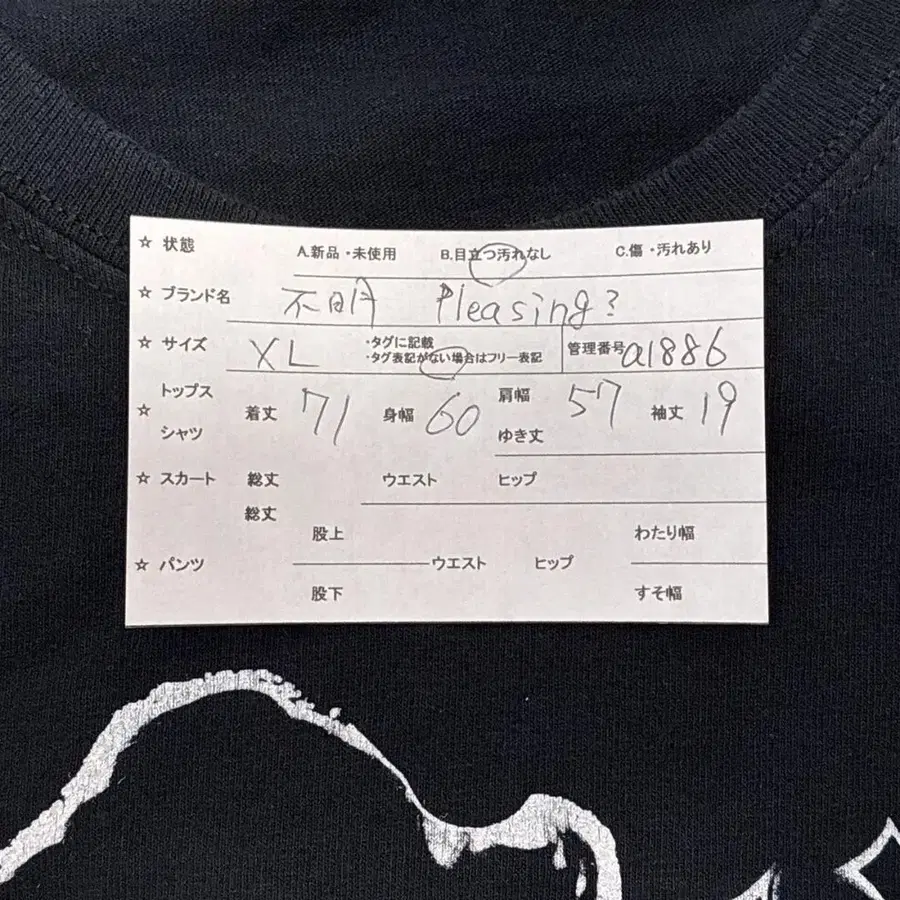 ☆ 状態 A.新品・未使用 B.目立つ汚れなし C.傷・汚れあり
☆ ブランド名 不明 Pleasing?
☆ サイズ XL ・タグに記載
・タグ表記がない場合はフリー表記 管理番号 a1886
トップス
☆ 着丈 71 身幅 60 肩幅 57 袖丈 19
シャツ ゆき丈
☆ スカート 総丈 ウエスト ヒップ
総丈
股上 わたり幅
☆ パンツ ウエスト ヒップ
股下 すそ幅